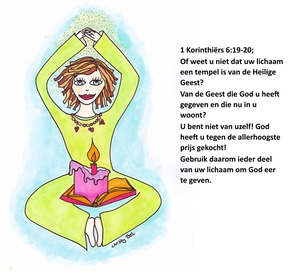 1 Korinthiërs 6:19-20;
Of weet u niet dat uw lichaam
een tempel is van de Heilige
Geest?
Van de Geest die God u heeft
gegeven en die nu in u
woont?
U bent niet van uzelf! God
heeft u tegen de allerhoogste
prijs gekocht!
Gebruik daarom ieder deel
van uw lichaam om God eer
te geven.